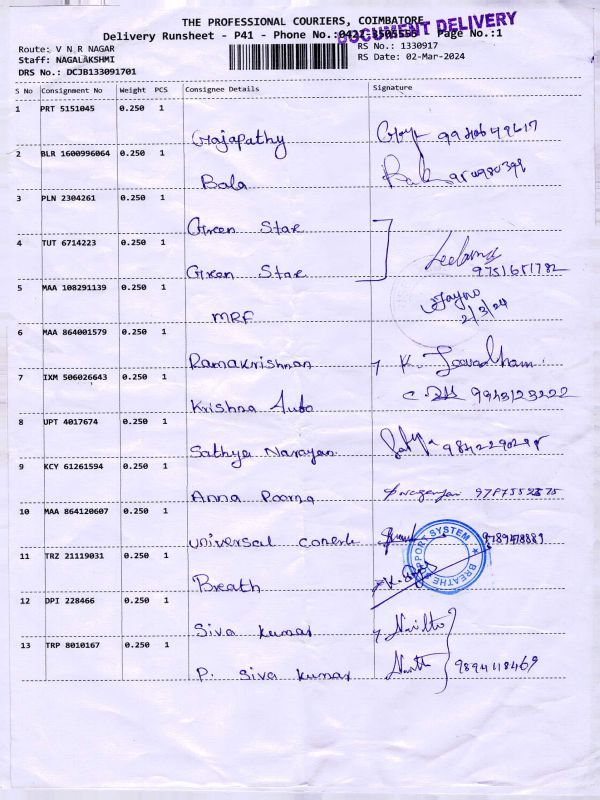 THE PROFESSIONAL COURIERS, COIMBATORE
DOCUMENT DELIVERY
Delivery Runsheet - P41 - Phone No.:0422 3505555 Page No.:1
Route: V N R NAGAR RS No.: 1330917
Staff: NAGALAKSHMI RS Date: 02-Mar-2024
DRS No.: DCJB133091701
S No Consignment No Weight PCS Consignee Details Signature
1 PRT 5151045 0.250 1
Gajapathy
2 BLR 1600996064 0.250 1
Bala
3 PLN 2304261 0.250 1
Green Star
4 TUT 6714223 0.250 1
Green Star 9751651782
5 MAA 108291139 0.250 1
MRF 2/3/24
6 MAA 864001579 0.250 1
Ramakrishnan
7 IXM 506026643 0.250 1
Krishna Auto 9943123222
8 UPT 4017674 0.250 1
Sathya Narayan
9 KCY 61261594 0.250 1
Anna Poorna
10 MAA 864120607 0.250 1
Universal
SUPPORT SYSTEM
BREATHE
11 TRZ 21119031 0.250 1
Breath
12 DPI 228466 0.250 1
Siva kumar
13 TRP 8010167 0.250 1
P. Siva kumar 9894118469